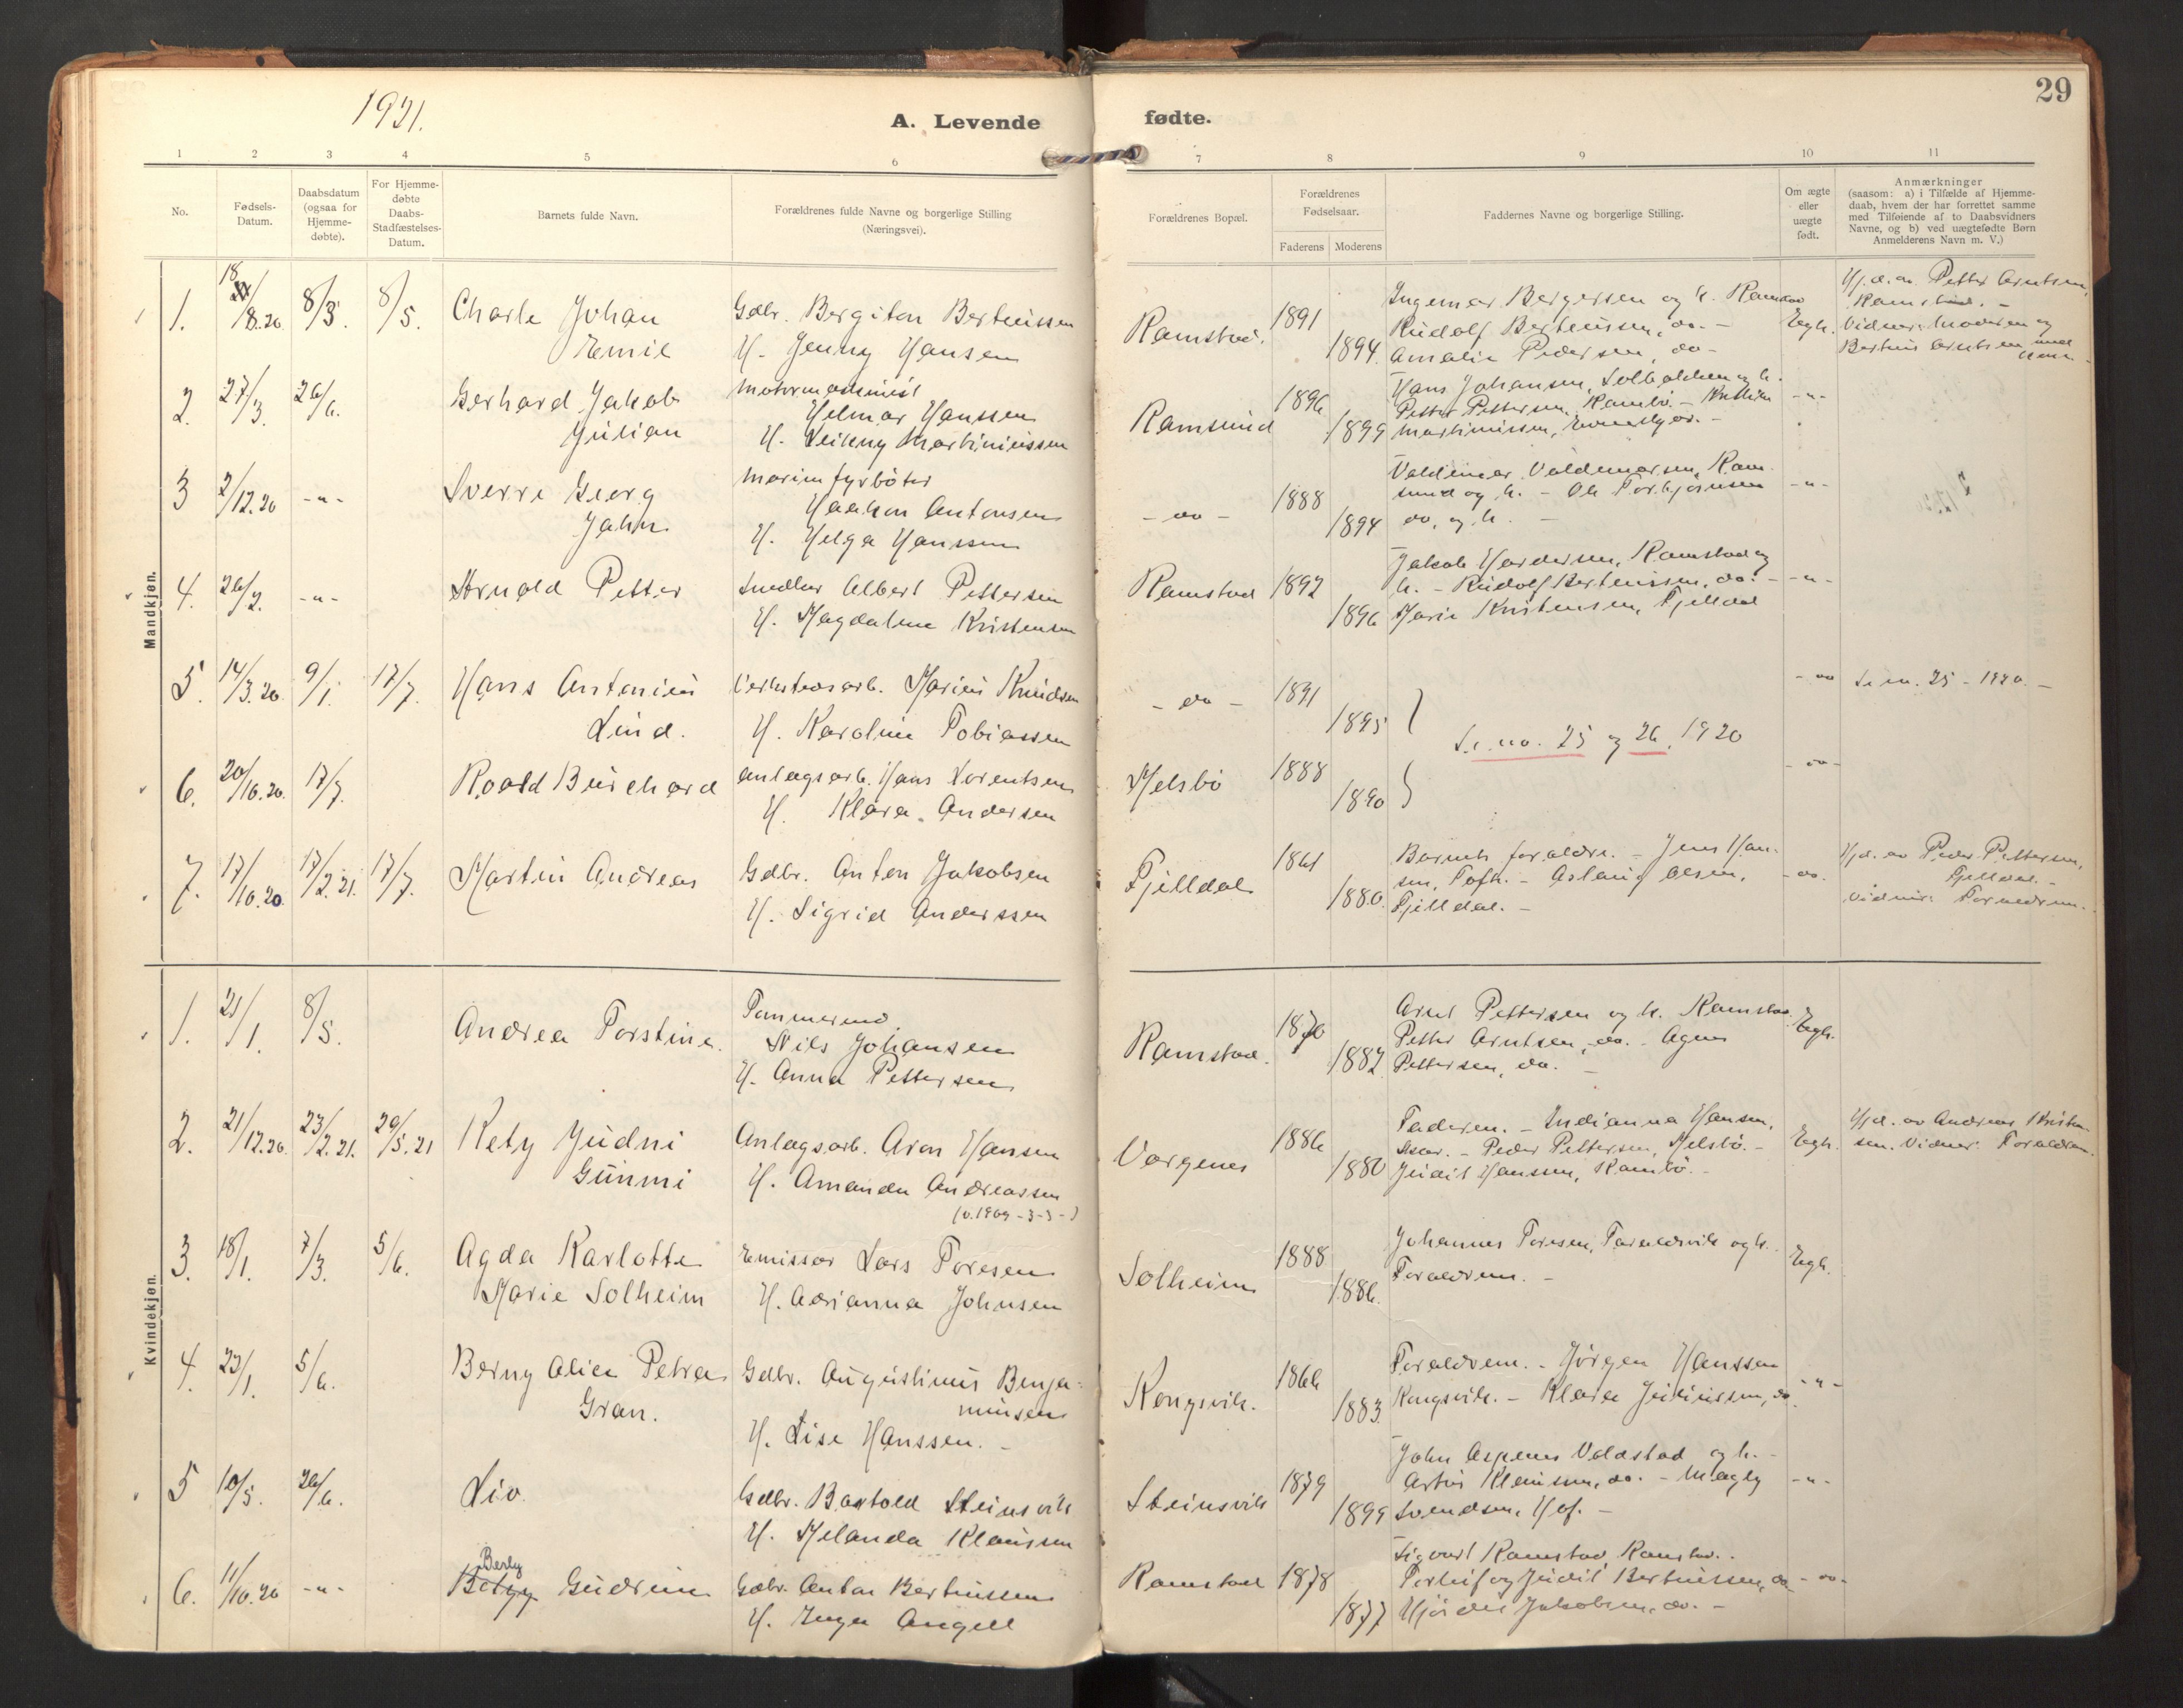 1921.
A. Levende fødte.
29
1 2 3 4 5 6 7 8 9 10 11
No.
Fødsels-Datum.
Daabsdatum (ogsaa for Hjemme-døbte).
For Hjemme-døbte Daabs-Stadfæstelses-Datum.
Barnets fulde Navn.
Forældrenes fulde Navne og borgerlige Stilling
(Næringsvei).
Forældrenes Bopæl.
Forældrenes Fødselsaar.
Faderens Moderens
Faddernes Navne og borgerlige Stilling.
Om ægte eller uægte født.
Anmærkninger
(saasom: a) i Tilfælde af Hjemme-
daab, hvem der har forrettet samme
med Tilføiende af to Daabsvidners
Navne, og b) ved uægtefødte Børn
Anmelderens Navn m. V.)
Mandkjøn.
1. 18/8.20 8/3. 8/5. Charle Johan Gdbr. Bergiton Berteussen Ramstad. 1891 Ingemar Bergersen og h. Ramstad Hj.d. av Petter Arntsen,
Emil H. Jenny Hansen 1894. Rudolf Berteussen, do. - Egte. Ramstad. -
Amalie Pedersen, do - Vidner: Moderen og
Berteus Arntsen
2. 27/3. 26/6. Gerhard Jakob Motormaskinist Ramsund 1896 Hans Johansen, Solbakken og h. - " -
Julian Helmar Hanssen 1899 Petter Pettersen, Rambö. -
H. Leikny Martiniussen Martiniussen,
3 2/12.20 - " - Sverre Georg Marinefyrböter - do - 1888 Valdemar Valdemarsen, Ram- - " -
John Haakon Antonsen 1894 sund og h. - Ole Torbjörnsen
H. Helga Hanssen do, og h. -
4. 26/2. - " - Arnold Petter Snedker Albert Pettersen Ramstad 1892 Jakob Hardersen, Ramstad og - " -
H. Magdalene Kristensen 1896 h. - Rudolf Berteussen, do. -
Marie Kristensen, Fjelldal
5. 14/3.20 9/1. 17/7. Hans Antonius Verkstedsarb. Marius Knudsen - do - 1891 - do Se no. 25 - 1920. -
Lind. H. Karoline Tobiassen 1895
Se no. 25 og 26, 1920
6. 20/10.20. 17/7. Roald Burchard Anlægsarb. Hans Lorentsen Melsbö 1888 - do -
H. Klara Andersen 1890
7. 17/10.20. 17/2.21. 17/7. Martin Andreas Gdbr. Anton Jakobsen Fjelldal 1861 Barnets foraldre. - Jens Han- - do. Hj.d. av Peder Pettersen,
H. Sigrid Anderssen 1880. sen, Toft. - Aslaug Olsen, Fjelldal. -
Fjelldal. - Vidner: Foraldrene.
Kvindekjøn.
1. 21/1. 8/5. Andrea Torstine. Tømmermd. Ramstad. 1870 Arnt Pettersen og h. Ramstad. Egte.
Nils Johansen 1882. Petter Arntsen, do. - Agnes
H. Anna Pettersen Pettersen, do. -
2. 21/12.20. 23/2.21. 29/5.21 Kety Judni Anlægsarb. Aron Hansen Vargenes 1886 Faderen. - Indianna Hansen, Egte. Hj.d. av Andreas Kristen-
Gunmi H. Amanda Andreassen 1880 - Peder Pettersen, Melsbö. - sen. Vidner: Foraldrene.
(v. 1909 - 3-3-) Judit Hanssen, Rambö. -
3. 18/1. 7/3. 5/6. Agda Karlotte Emissær Lars Toresen Solheim 1888 Johannes Toresen, Taraldsvik og h. Egte.
Marie Solheim H. Adrianna Johnsen 1886. Foraldrene. -
4. 23/1. 5/6. Berny Alice Petra Gdbr. Augustinus Benja- Kongsvik. 1866 Foraldrene. - Jörgen Hanssen - " -
Gran. minsen 1883 Kongsvik. - Klara Juliussen, do.
H. Lise Hanssen. -
5 10/5. 26/6. Liv Gdbr. Bartold Steinsvik Steinsvik 1879 John Aspenes Voldstad og h. - - " -
H. Melanda Klaussen 1899 Artur Klaussen, do. - Magly
Svendsen, Hof. -
6. 11/10.20 - " - Berly
Betzy Gudrun Gdbr. Anton Berteussen Ramstad 1878 Sigvart Ramstad, Ramstad. - - do -
H. Inga Angell 1877 Torleif og Judit Berteussen, do -
Hjördis Jakobsen, do. -